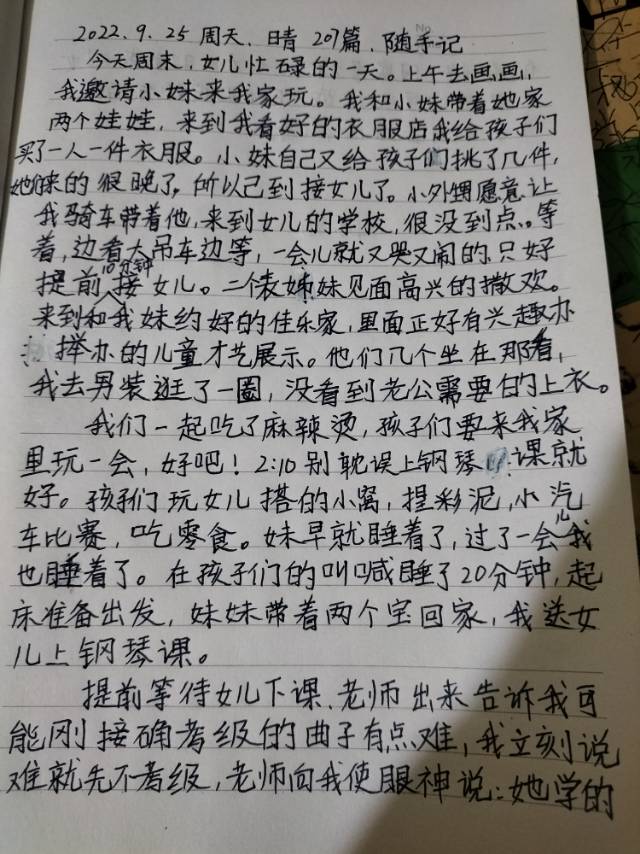 2022.9.25 周天.晴 207篇.随手记
今天周末,女儿忙碌的一天。上午去画画,
我邀请小妹来我家玩。我和小妹带着她家
两个娃娃,来到我看好的衣服店我给孩子们
买了一人一件衣服。小妹自己又给孩子们挑了几件,
她们来的很晚了,所以已到接女儿了。小外甥愿意让
我骑车带着他,来到女儿的学校,很没到点。等
着,边看大吊车边等,一会儿就又哭又闹的,只好
提前10分钟接女儿。二个表姊妹见面高兴的撒欢。
来到和我妹约好的佳乐家,里面正好有兴趣办
举办的儿童才艺展示。他们几个坐在那看,
我去男装逛了一圈,没看到老公需要的上衣。
我们一起吃了麻辣烫,孩子们要来我家
里玩一会,好吧!2:10别耽误上钢琴课就
好。孩子们玩女儿搭的小窝,捏彩泥,小汽
车比赛,吃零食。妹早就睡着了,过了一会儿我
也睡着了。在孩子们的叫喊睡了20分钟,起
床准备出发,妹妹带着两个宝回家,我送女
儿上钢琴课。
提前等待女儿下课.老师出来告诉我可
能刚接确考级的曲子有点难,我立刻说
难就先不考级,老师向我使眼神说:她学的